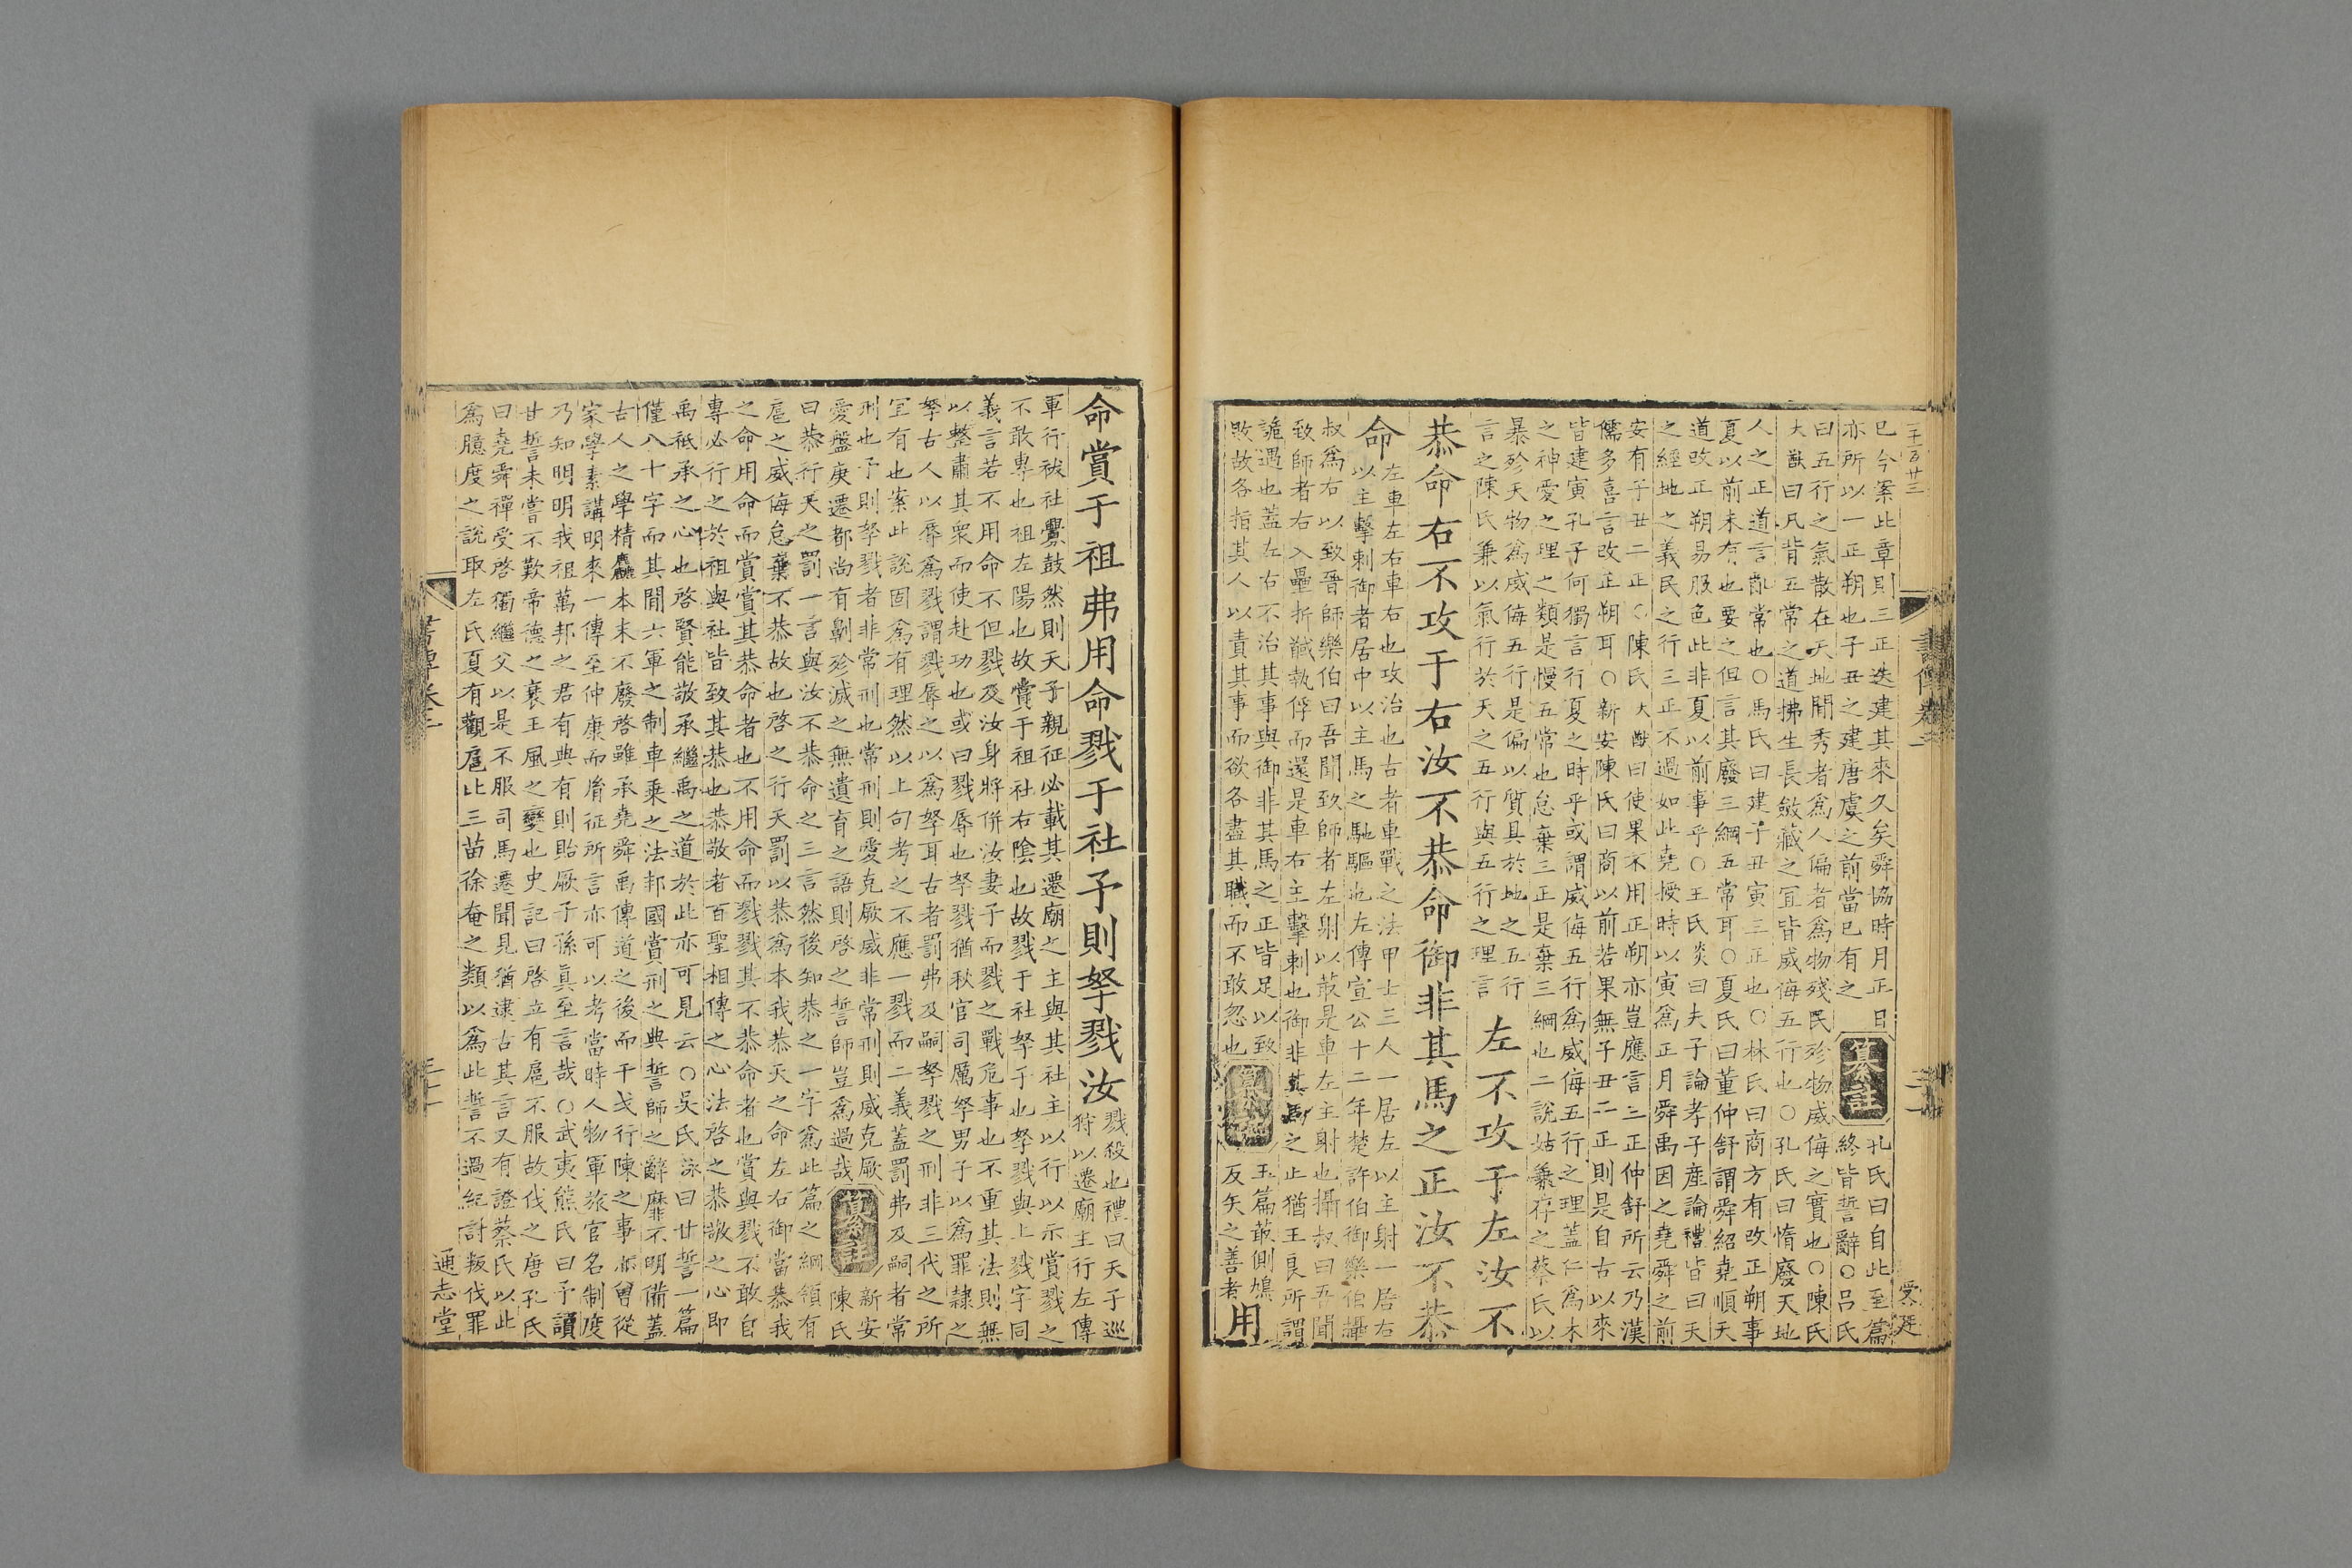 巳今案此章則三正迭建其來久矣舜協時月正日
亦所以一正朔也子丑之建唐虞之前當巳有之
纂註
孔氏曰自此至篇
終皆誓辭○呂氏
曰五行之氣散在天地間秀者爲人偏者爲物殘民殄物威侮之實也○陳氏
大猷曰凡背五常之道拂生長斂藏之宜皆威侮五行也○孔氏曰惰廢天地
人之正道言亂常也○馬氏曰建子丑寅三正也○林氏曰商方有改正朔事
夏以前未有也要之但言其廢三綱五常耳○夏氏曰董仲舒謂舜紹堯順天
道改正朔易服色此非夏以前事乎○王氏炎曰夫子論孝子産論禮皆曰天
之經地之義民之行三正不過如此堯授時以寅爲正月舜禹因之堯舜之前
安有子丑二正○陳氏大猷曰使果不用正朔亦豈應言三正仲舒所云乃漢
儒多喜言改正朔耳○新安陳氏曰商以前若果無子丑二正則是自古以來
皆建寅孔子何獨言行夏之時乎或謂威侮五行爲威侮五行之理蓋仁爲木
之神愛之理之類是慢五常也怠棄三正是棄三綱也二說姑兼存之蔡氏以
暴殄天物爲威侮五行是偏以質具於地之五行
言之陳氏兼以氣行於天之五行與五行之理言
左不攻于左汝不
恭命右不攻于右汝不恭命御非其馬之正汝不恭
命
左車左右車右也攻治也古者車戰之法甲士三人一居左以主射一居右
以主擊刺御者居中以主馬之馳驅也左傳宣公十二年楚許伯御樂伯攝
叔爲右以致晉師樂伯曰吾聞致師者左射以菆是車左主射也攝叔曰吾聞
致師者右入壘折馘執俘而還是車右主擊刺也御非其馬之正猶王良所謂
詭遇也蓋左右不治其事與御非其馬之正皆足以致
敗故各指其人以責其事而欲各盡其職而不敢忽也
玉篇菆側鳩
反矢之善者
用
命賞于祖弗用命戮于社予則孥戮汝
戮殺也禮曰天子巡
狩以遷廟主行左傳
軍行祓社釁鼓然則天子親征必載其遷廟之主與其社主以行以示賞戮之
不敢專也祖左陽也故賞于祖社右陰也故戮于社孥子也孥戮與上戮字同
義言若不用命不但戮及汝身將併汝妻子而戮之戰危事也不重其法則無
以整肅其衆而使赴功也或曰戮辱也孥戮猶秋官司厲孥男子以爲罪隸之
孥古人以辱爲戮謂戮辱之以爲孥耳古者罰弗及嗣孥戮之刑非三代之所
宜有也案此說固爲有理然以上句考之不應一戮而二義蓋罰弗及嗣者常
刑也予則孥戮者非常刑也常刑則愛克厥威非常刑則威克厥
愛盤庚遷都尚有劓殄滅之無遺育之語則啓之誓師豈爲過哉
纂註
新安
陳氏
曰恭行天之罰一言與汝不恭命之三言然後知恭之一字爲此篇之綱領有
扈之威侮怠棄不恭故也啓之行天罰以恭爲本我恭天之命左右御當恭我
之命用命而賞賞其恭命者也不用命而戮戮其不恭命者也賞與戮不敢自
專必行之於祖與社皆致其恭也恭敬者百聖相傳之心法啓之恭敬之心即
禹祗承之心也啓賢能敬承繼禹之道於此亦可見云○吳氏泳曰甘誓一篇
僅八十字而其間六軍之制車乘之法邦國賞刑之典誓師之辭靡不明備蓋
古人之學精麤本末不廢啓雖承堯舜禹傳道之後而干戈行陳之事亦曾從
家學素講明來一傳至仲康而胤征所言亦可以考當時人物軍旅官名制度
乃知明明我祖萬邦之君有典有則貽厥子孫眞至言哉○武夷熊氏曰予讀
甘誓未嘗不歎帝德之衰王風之變也史記曰啓立有扈不服故伐之唐孔氏
曰堯舜禪受啓獨繼父以是不服司馬遷聞見猶逮古其言又有證蔡氏以此
爲臆度之說取左氏夏有觀扈比三苗徐奄之類以爲此誓不過紀討叛伐罪
通志堂